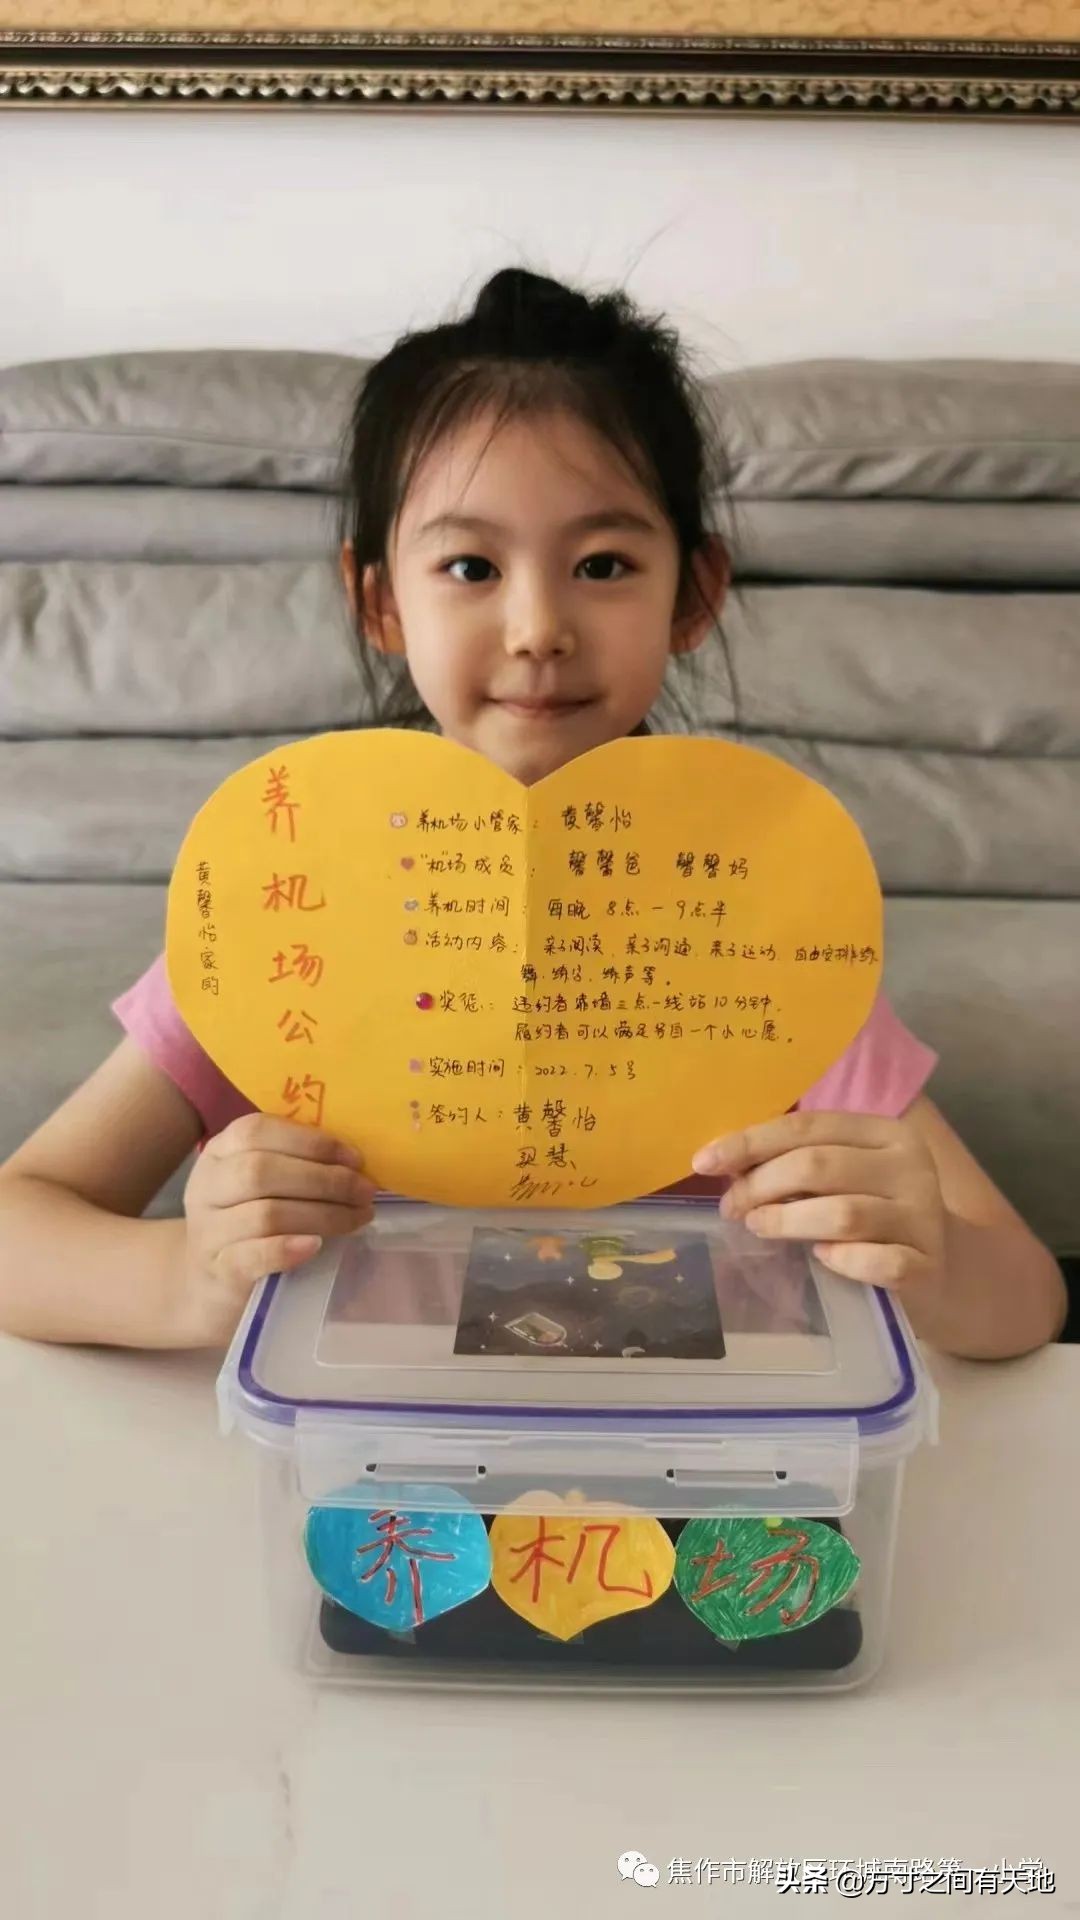 黄馨怡家的
养机场公约
养机场小管家：黄馨怡
"机"场成员：馨馨爸 馨馨妈
养机时间：每晚8点－9点半
活动内容：亲子阅读、亲子沟通、亲子运动、自由安排练
舞、练字、练声等。
奖惩：违约者靠墙三点一线站10分钟，
履约者可以满足各自一个小心愿。
实施时间：2022.7.5号
签约人：黄馨怡
养机场
焦作市解放区环城南路第一小学
头条 @方寸之间有天地